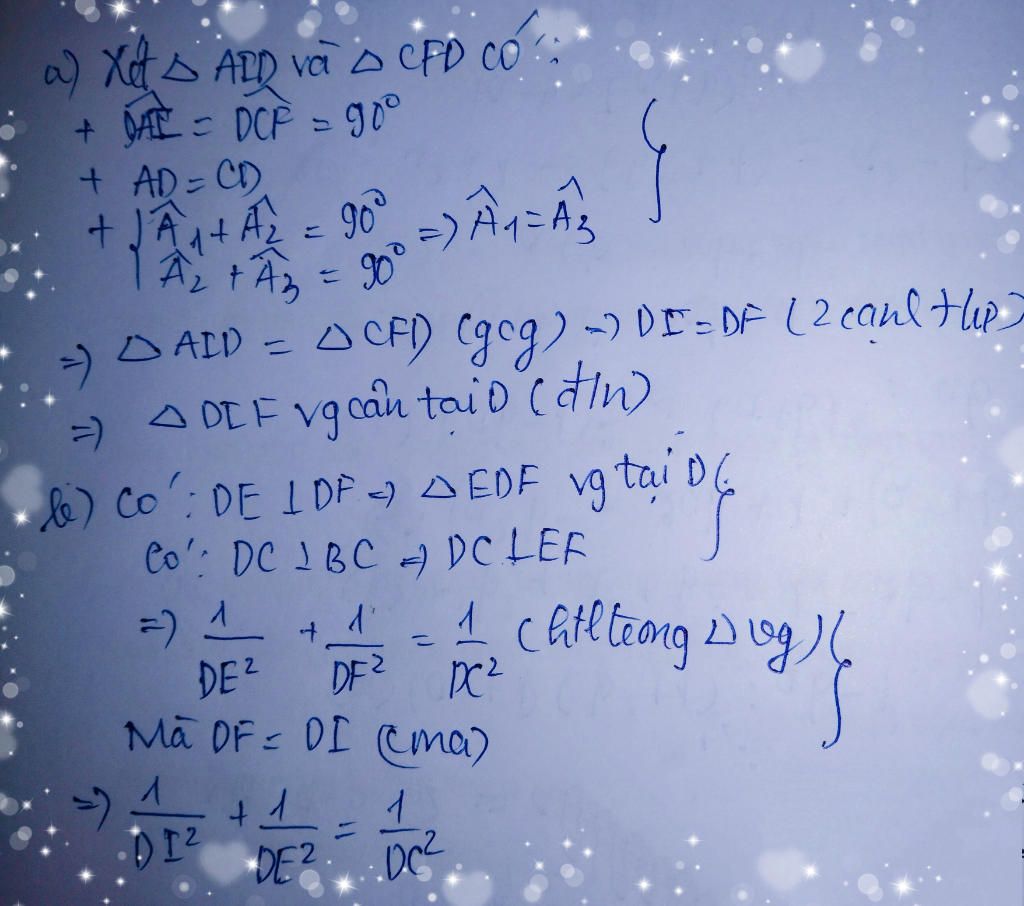 a) Xét △ AID và △ CFD có:
+ \widehat{DAI} = \widehat{DCF} = 90°
+ AD = CD
+ { Â1 + Â2 = 90° => Â1 = Â3
Â2 + Â3 = 90° }
=> △ AID = △ CFD (gcg) => DI = DF (2 cạnh
=> △ DIF vg cân tại D (đ/n)
b) Có: DE ⊥ DF => △ EDF vg tại D }
Có: DC ⊥ BC => DC ⊥ EF
=> 1/DE² + 1/DF² = 1/DC² (htl trong △ vg) }
Mà DF = DI (cma)
=> 1/DI² + 1/DE² = 1/DC²